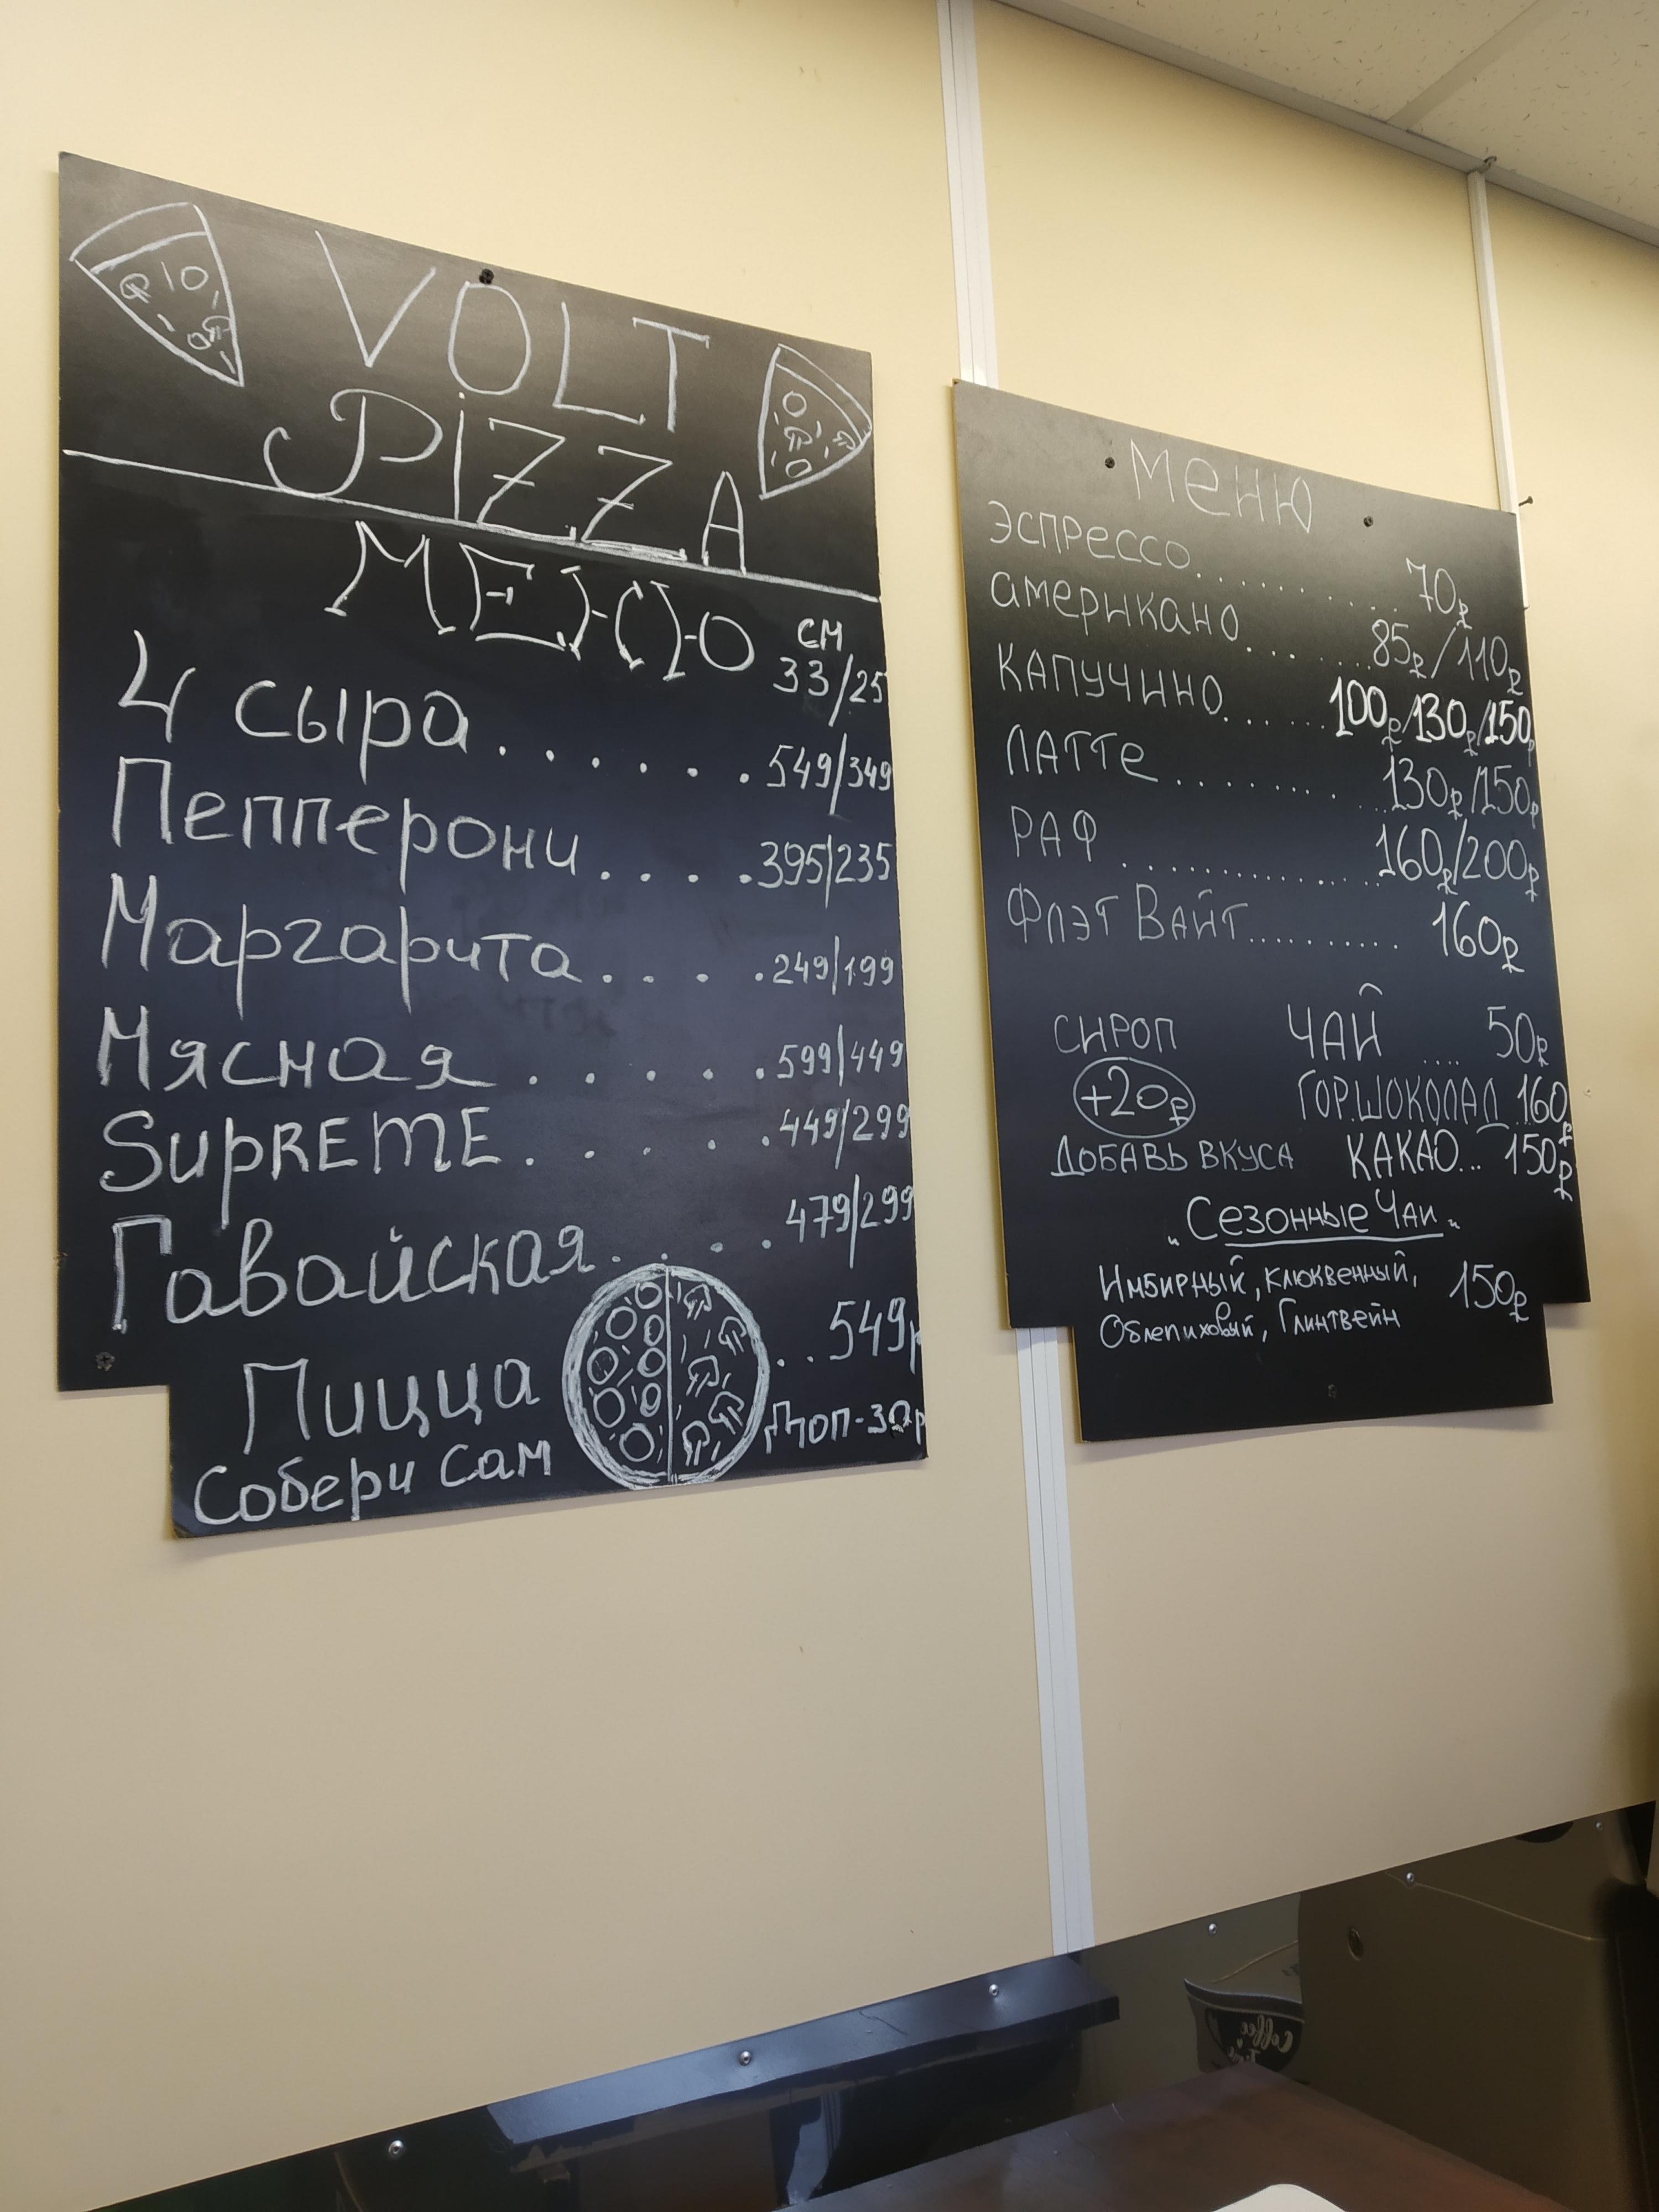 VOLT
PIZZA
МЕНЮ
СМ
33/25
4 сыра......549/349
Пепперони.....395/235
Маргарита.....249/199
Мясная......599/449
SupREME......449/299
Гавайская.....479/299
Пицца ..549р
Собери Сам
доп-30р
Меню
ЭСПРЕССО............70₽
американо.......85₽/110₽
КАПУЧИНО......100₽/130₽/150₽
ЛАТТе..........130₽/150₽
РАФ..............160₽/200₽
ФЛЭТ ВАЙТ...........160₽
СИРОП
+20₽
ДОБАВЬ ВКУСА
ЧАЙ .... 50₽
ГОР.ШОКОЛАД 160₽
КАКАО... 150₽
„Сезонные Чаи"
Имбирный, клюквенный,
Облепиховый, Глинтвейн
150₽
Coffee
Time